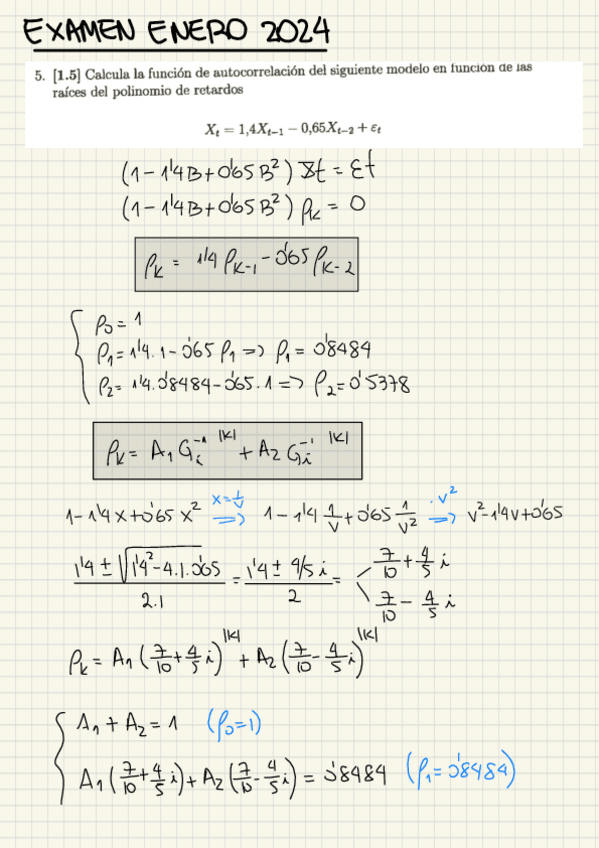 EXAMEN ENERO 2024
5. [1.5] Calcula la función de autocorrelación del siguiente modelo en función de las
raíces del polinomio de retardos
Xₜ = 1,4Xₜ₋₁ − 0,65Xₜ₋₂ + εₜ
(1 - 1'4B + 0'65B²) Xt = εt
(1 - 1'4B + 0'65B²) ρₖ = 0
ρₖ = 1'4 ρₖ₋₁ - 0'65 ρₖ₋₂
ρ₀ = 1
ρ₁ = 1'4·1 - 0'65 ρ₁ => ρ₁ = 0'8484
ρ₂ = 1'4·0'8484 - 0'65·1 => ρ₂ = 0'5378
ρₖ = A₁ Gᵢ⁻¹ |k| + A₂ Gᵢ⁻¹ |k|
1 - 1'4x + 0'65x² x=1/v => 1 - 1'4 1/v + 0'65 1/v² ·v² => v² - 1'4v + 0'65
(1'4 ± √(1'4² - 4·1·0'65))/2·1 = (1'4 ± 4/5 i)/2 = 7/10 + 4/5 i
7/10 - 4/5 i
ρₖ = A₁ (7/10 + 4/5 i)^|k| + A₂ (7/10 - 4/5 i)^|k|
A₁ + A₂ = 1 (ρ₀=1)
A₁ (7/10 + 4/5 i) + A₂ (7/10 - 4/5 i) = 0'8484 (ρ₁ = 0'8484)